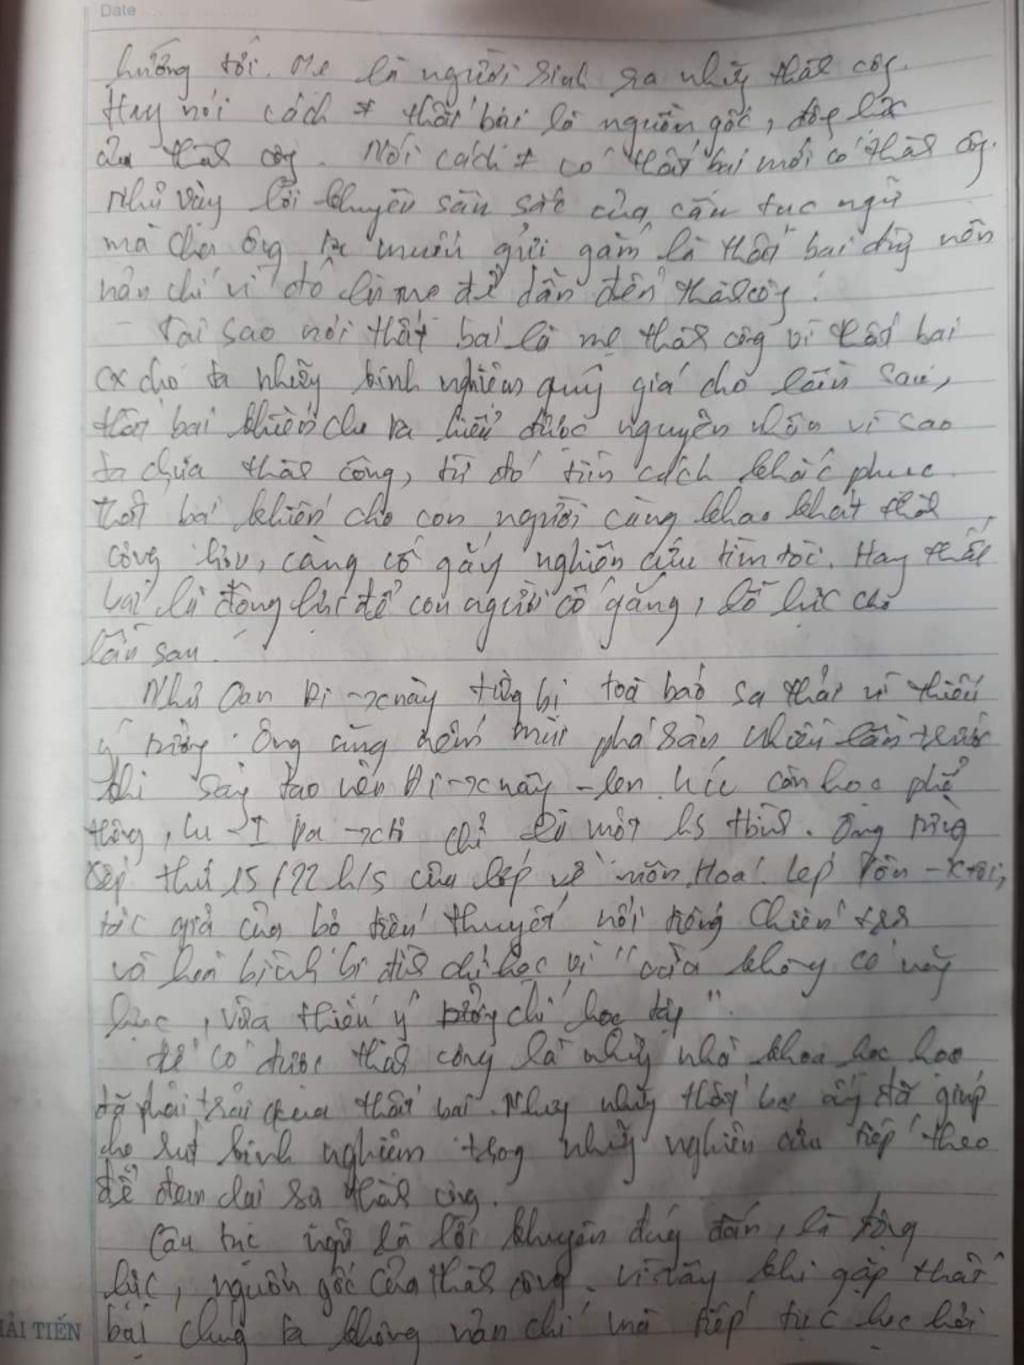 Date
hướng tới. Mẹ là người sinh ra những thành công.
Hay nói cách ≠ thất bại là nguồn gốc, động lực
của thành công. Nói cách ≠ có thất bại mới có thành công.
Như vậy lời khuyên sâu sắc của câu tục ngữ
mà cha ông ta muốn gửi gắm là thất bại đừng nên
nản chí vì đó là mẹ để dẫn đến thành công.
- Tại sao nói thất bại là mẹ thành công vì thất bại
cho ta nhiều kinh nghiệm quý giá cho lần sau,
thất bại khiến cho ta hiểu được nguyên nhân vì sao
ta chưa thành công, từ đó tìm cách khắc phục
thất bại khiến cho con người càng khao khát thành
công hơn, càng cố gắng nghiên cứu tìm tòi. Hay thất
bại là động lực để con người cố gắng, lỗ lực cho
lần sau.
Như Oan Đi-xnây từng bị toà báo sa thải vì thiếu
ý tưởng. Ông cũng nếm mùi phá sản nhiều lần trước
khi sáng tạo nên Đi-xnây-len. Lúc còn học phổ
thông, Lu-I Pa-xtơ chỉ là một hs tbình. Ông từng
xếp thứ 15/22 h/s của lớp về môn Hoá. Lép Tôn-xtôi,
tác giả của bộ tiểu thuyết nổi tiếng Chiến tranh
và hoà bình bị đình chỉ học vì "vừa không có năng
lực, vừa thiếu ý chí học tập".
Để có được thành công là những nhà khoa học
đã phải trải qua thất bại. Nhưng những thất bại ấy đã giúp
họ rút kinh nghiệm trong những nghiên cứu tiếp theo
để đem lại sự thành công.
Câu tục ngữ là lời khuyên đúng đắn, là động
lực, nguồn gốc của thành công. Vì vậy khi gặp thất
bại chúng ta không nản chí mà tiếp tục học hỏi
HẢI TIẾN